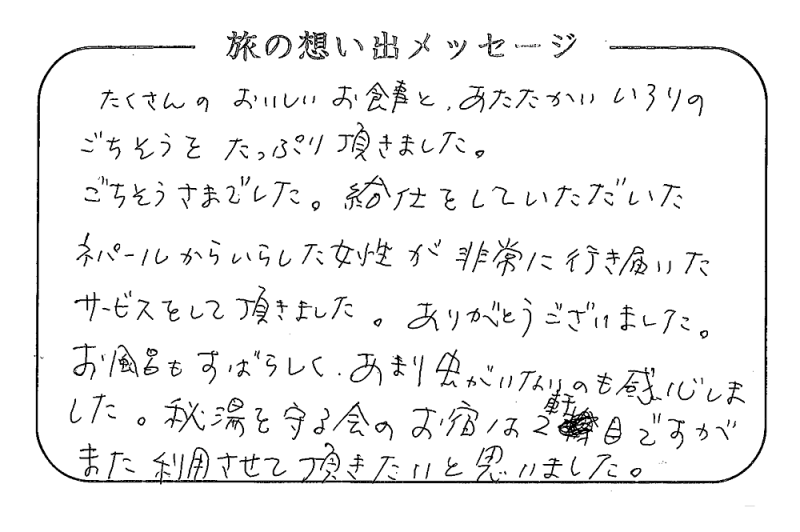 旅の想い出メッセージ
たくさんの おいしい お食事と、あたたかい いろりの
ごちそうを たっぷり 頂きました。
ごちそうさまでした。給仕をしていただいた
ネパールからいらした女性が 非常に行き届いた
サービスをして頂きました。ありがとうございました。
お風呂もすばらしく、あまり虫がいないのも感心しま
した。秘湯を守る会の お宿は2軒目ですが
また 利用させて頂きたいと思いました。